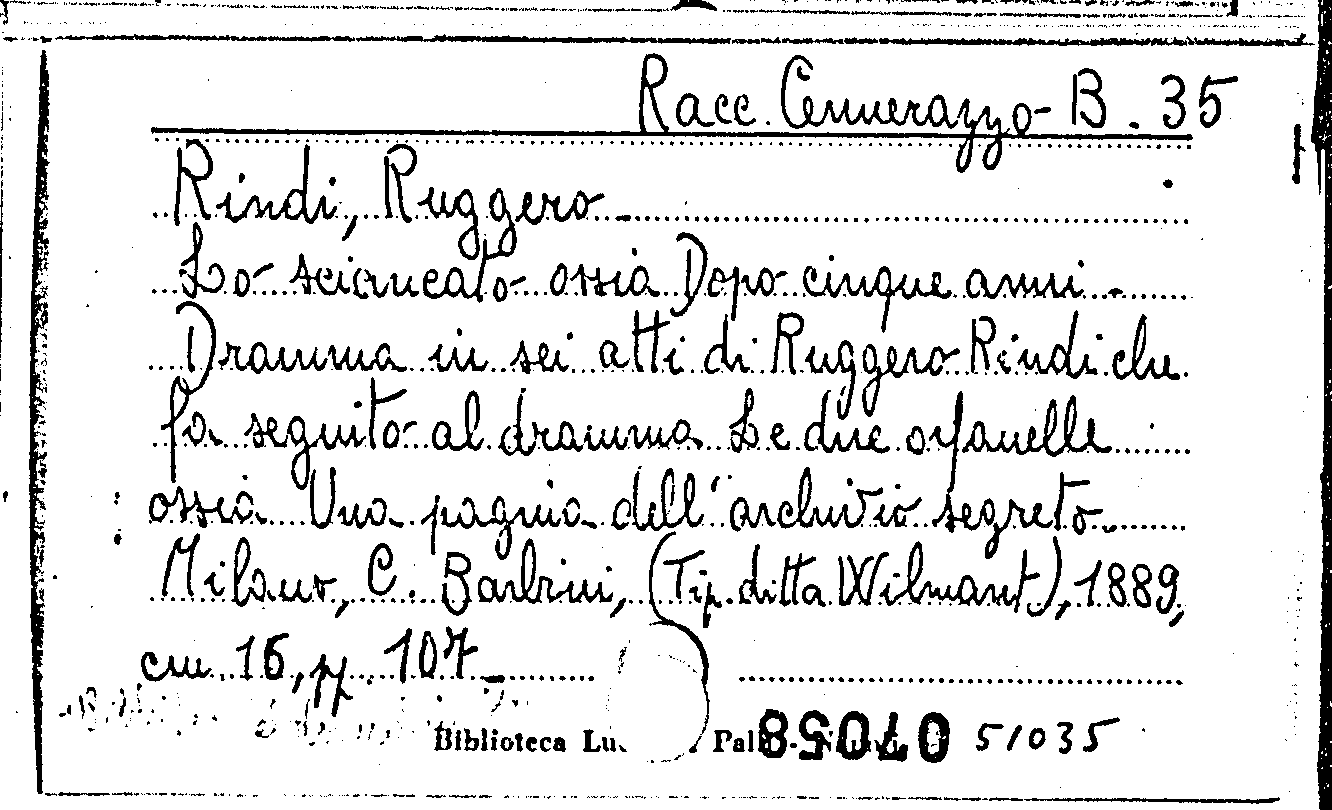 Racc. Cennerazzo - B. 35
Rindi, Ruggero
Lo sciancato ossia Dopo cinque anni -
Dramma in sei atti di Ruggero Rindi che
fa seguito al dramma Le due orfanelle
ossia Una pagina dell'archivio segreto
Milano, C. Barbini, (Tip. ditta Wilmant), 1889,
cm 16, pp. 107
Biblioteca
51035